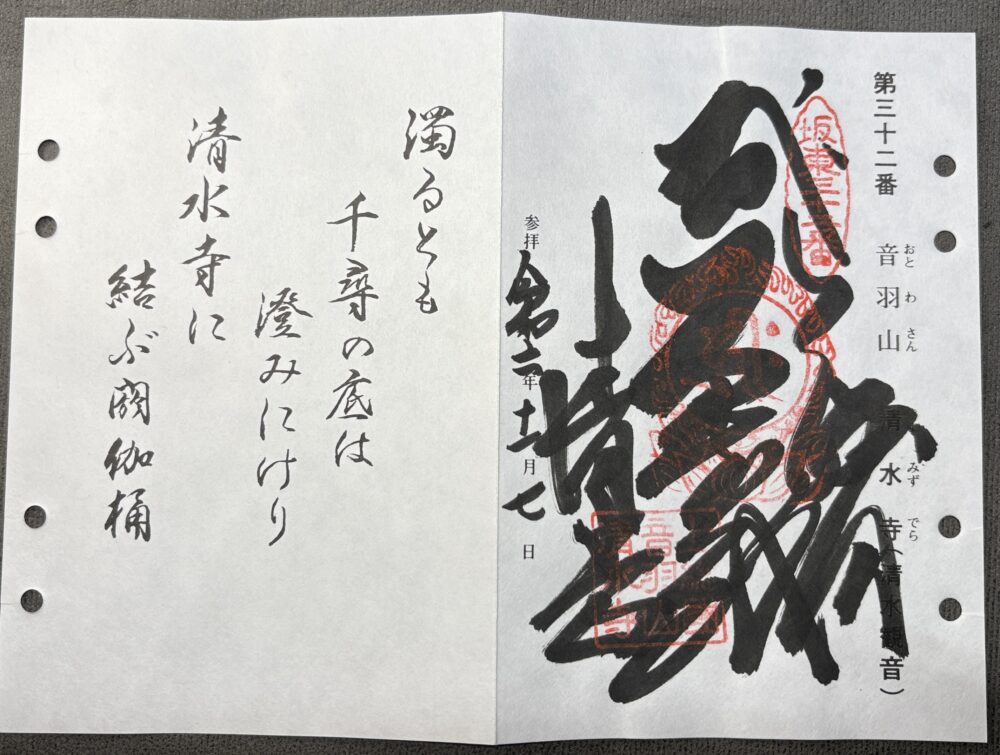 第三十二番　音羽山　清水寺（清水観音）
おと わ さん　みず でら
坂東三十二番
音羽山
清水寺
参拝 令和六年十二月七日
濁るとも
千尋の底は
澄みにけり
清水寺に
結ぶ閼伽桶